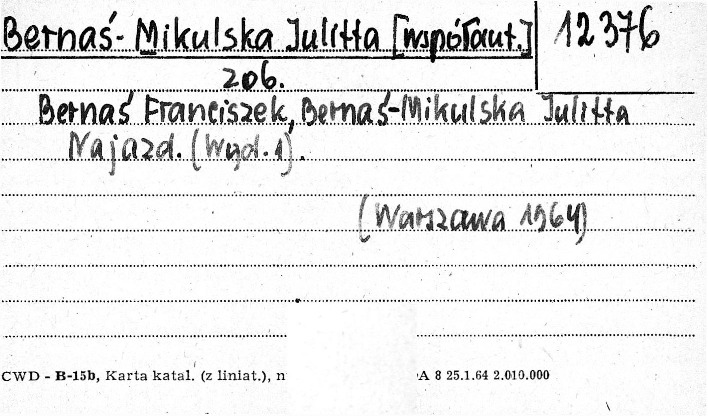 Bernaś-Mikulska Julitta [współaut.] 12376
206.
Bernaś Franciszek, Bernaś-Mikulska Julitta
Najazd. (Wyd. 1).
(Warszawa 1964)
CWD - B-15b, Karta katal. (z liniat.), n A 8 25.1.64 2.010.000